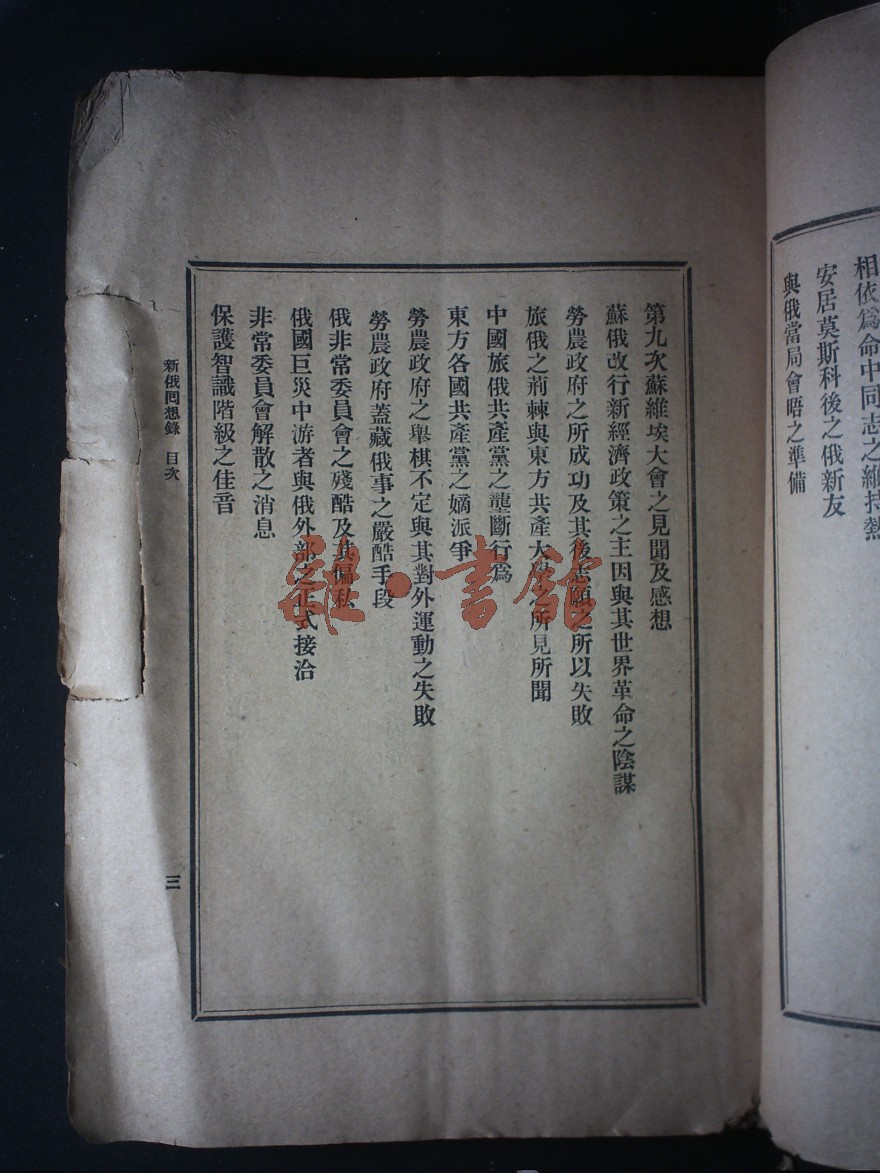 相依爲命中同志之維持熱
安居莫斯科後之俄新友
與俄當局會晤之準備
第九次蘇維埃大會之見聞及感想
蘇俄改行新經濟政策之主因與其世界革命之陰謀
勞農政府之所成功及其後志願之所以失敗
旅俄之荊棘與東方共產大會之所見所聞
中國旅俄共產黨之壟斷行爲
東方各國共產黨之嫡派爭
勞農政府之舉棋不定與其對外運動之失敗
勞農政府蓋藏俄事之嚴酷手段
俄非常委員會之殘酷及其偏私
俄國巨災中游者與俄外部之正式接洽
非常委員會解散之消息
保護智識階級之佳音
新俄囘想錄 目次
三
雜·書館